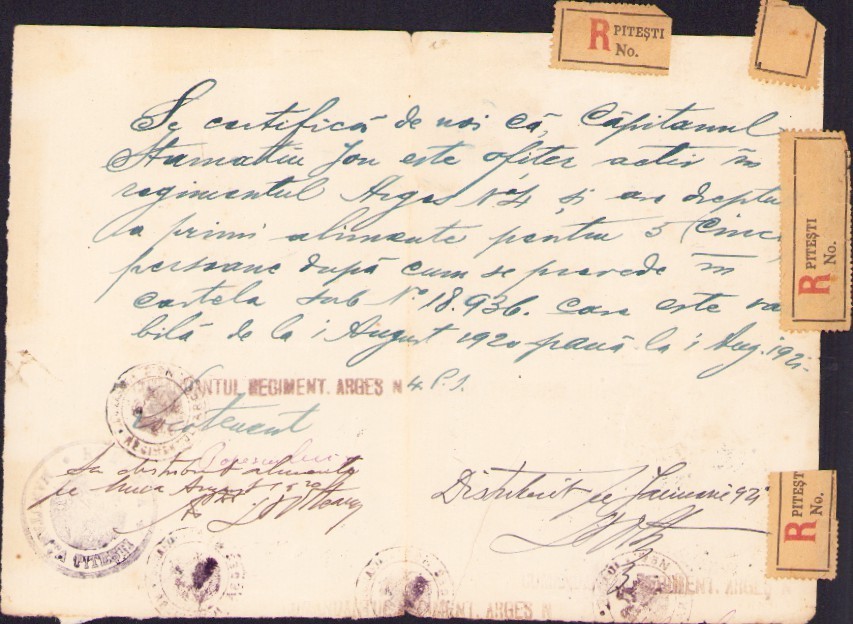 R PITEȘTI
No.
Se certifică de noi că, Căpitanul
Stamatiu Ion este ofițer activ în
regimentul Argeș No 4, și are dreptu
a primi alimente pentru 5 (Cinci
persoane după cum se prevede în
cartela sub No 18.936. care este va
bilă de la 1 August 1920 până la 1 Aug. 1921.
R PITEȘTI
No.
ANTUL REGIMENT. ARGEȘ N 4 P. I.
Locotenent
Popescu
Sa distribuit alimente
pe luna August 1920
Distribuit pe Ianuarie 921
R PITEȘT
No.
PITEȘTI
REGIMENT. ARGEȘ N